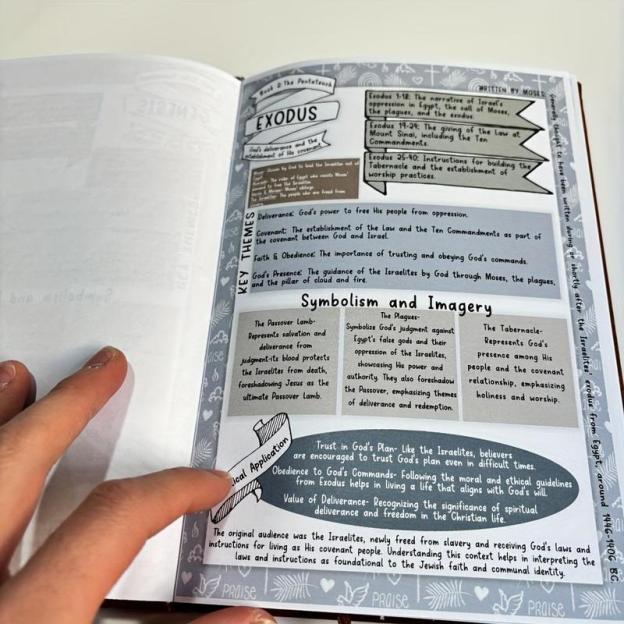 Book 2: The Pentateuch
EXODUS
God's deliverance and the
establishment of His covenant
WRITTEN BY MOSES
Exodus 1-18: The narrative of Israel's
oppression in Egypt, the call of Moses,
the plagues, and the exodus.
Exodus 19-24: The giving of the Law at
Mount Sinai, including the Ten
Commandments.
Exodus 25-40: Instructions for building the
Tabernacle and the establishment of
worship practices.
Moses- Chosen by God to lead the Israelites out of
Egypt.
Pharaoh- The ruler of Egypt who resists Moses'
The Israelites- The people who are freed from
KEY THEMES
Deliverance: God's power to free His people from oppression.
Covenant: The establishment of the Law and the Ten Commandments as part of
the covenant between God and Israel.
Faith & Obedience: The importance of trusting and obeying God's commands.
God's Presence: The guidance of the Israelites by God through Moses, the plagues,
and the pillar of cloud and fire.
Symbolism and Imagery
The Passover Lamb-
Represents salvation and
deliverance from
judgment-its blood protects
the Israelites from death,
foreshadowing Jesus as the
ultimate Passover Lamb.
The Plagues-
Symbolize God's judgment against
Egypt's false gods and their
oppression of the Israelites,
showcasing His power and
authority. They also foreshadow
the Passover, emphasizing themes
of deliverance and redemption.
The Tabernacle-
Represents God's
presence among His
people and the covenant
relationship, emphasizing
holiness and worship.
ical Application
Trust in God's Plan- Like the Israelites, believers
are encouraged to trust God's plan even in difficult times.
Obedience to God's Commands- Following the moral and ethical guidelines
from Exodus helps in living a life that aligns with God's will.
Value of Deliverance- Recognizing the significance of spiritual
deliverance and freedom in the Christian life.
The original audience was the Israelites, newly freed from slavery and receiving God's laws and
instructions for living as His covenant people. Understanding this context helps in interpreting the
laws and instructions as foundational to the Jewish faith and communal identity.
Generally thought to have been written during or shortly after the Israelites' exodus from Egypt, around 1446-1406 BC
PRAISE
PRAISE
PRAISE